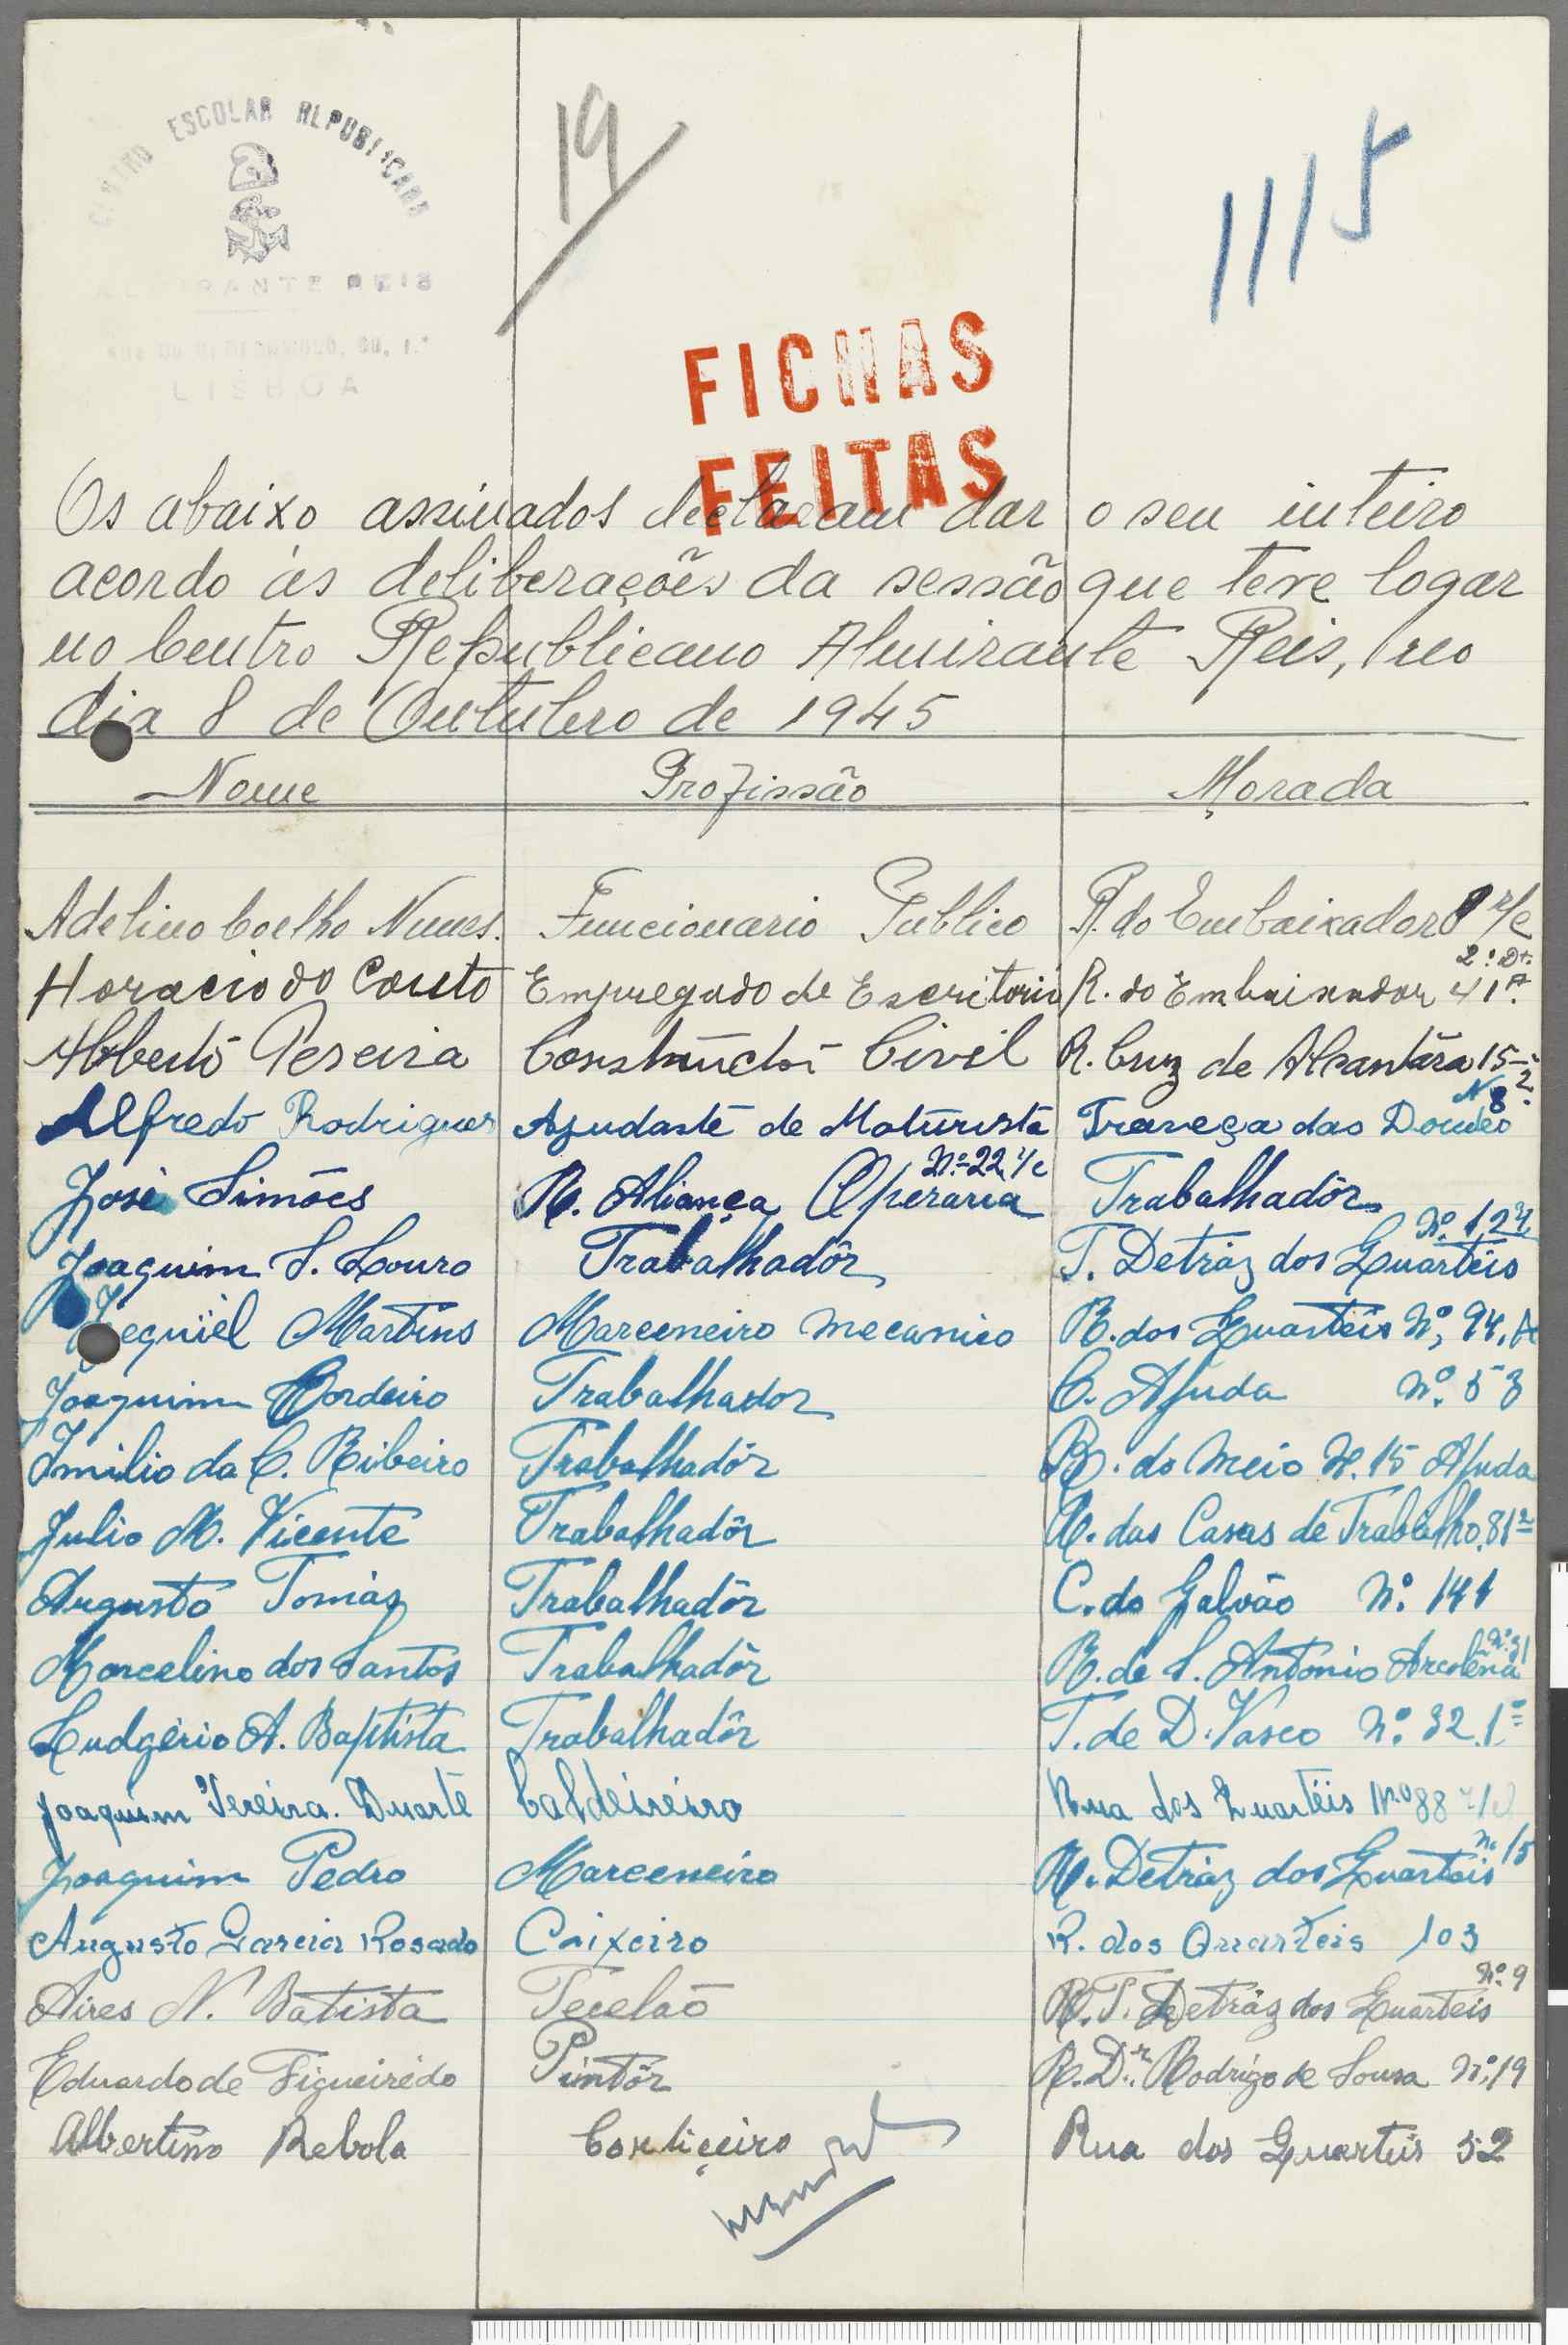 CENTRO ESCOLAR REPUBLICANO
ALMIRANTE REIS
LISBOA
19
1115
FICHAS
FEITAS
Os abaixo assinados declaram dar o seu inteiro
acordo às deliberações da sessão que teve logar
no Centro Republicano Almirante Reis, no
dia 8 de Outubro de 1945
Nome Profissão Morada
Adelino Coelho Nunes. Funcionario Publico R. do Embaixador r/c
Horacio do Couto Empregado de Escritorio R. do Embaixador 41A. 2º Dt.
Alberto Pereira Constructor Civil R. Cruz de Alcantâra 15-2º
Alfredo Rodrigues Ajudante de Moturista Traveça das Dores Nº 8
José Simões R. Aliança Operaria Nº 22 r/c Trabalhadôr
Joaquim S. Louro Trabalhadôr T. Detráz dos Quarteis Nº 12
equiël Martins Marceneiro mecanico R. dos Quartéis Nº 94. A
Joaquim Cordeiro Trabalhador C. Ajuda Nº 53
Imilio da C. Ribeiro Trabalhadôr R. do Meio N. 15 Ajuda
Julio M. Vicente Trabalhadôr R. das Casas de Trabalho, 81
Augusto Tomáz Trabalhadôr C. do Galvão Nº 141
Marcelino dos Santos Trabalhadôr R. de S. António Arcolêna Nº 31
Ludgério A. Baptista Trabalhadôr T. de D. Vasco Nº 32. 1º
Joaquim Pereira. Duarte Caldeireiro Rua dos Quartéis Nº 88
Joaquim Pedro Marceneiro R. Detráz dos Quarteis nº 15
Augusto Garcia Rosado Caixeiro R. dos Quarteis 103
Aires N. Batista Tecelaõ R. T. Detráz dos Quarteis Nº 9
Eduardo de Figueirêdo Pintôr R. Dr. Rodrigo de Sousa Nº 19
Albertino Rebola Corticeiro Rua dos Quarteis 52